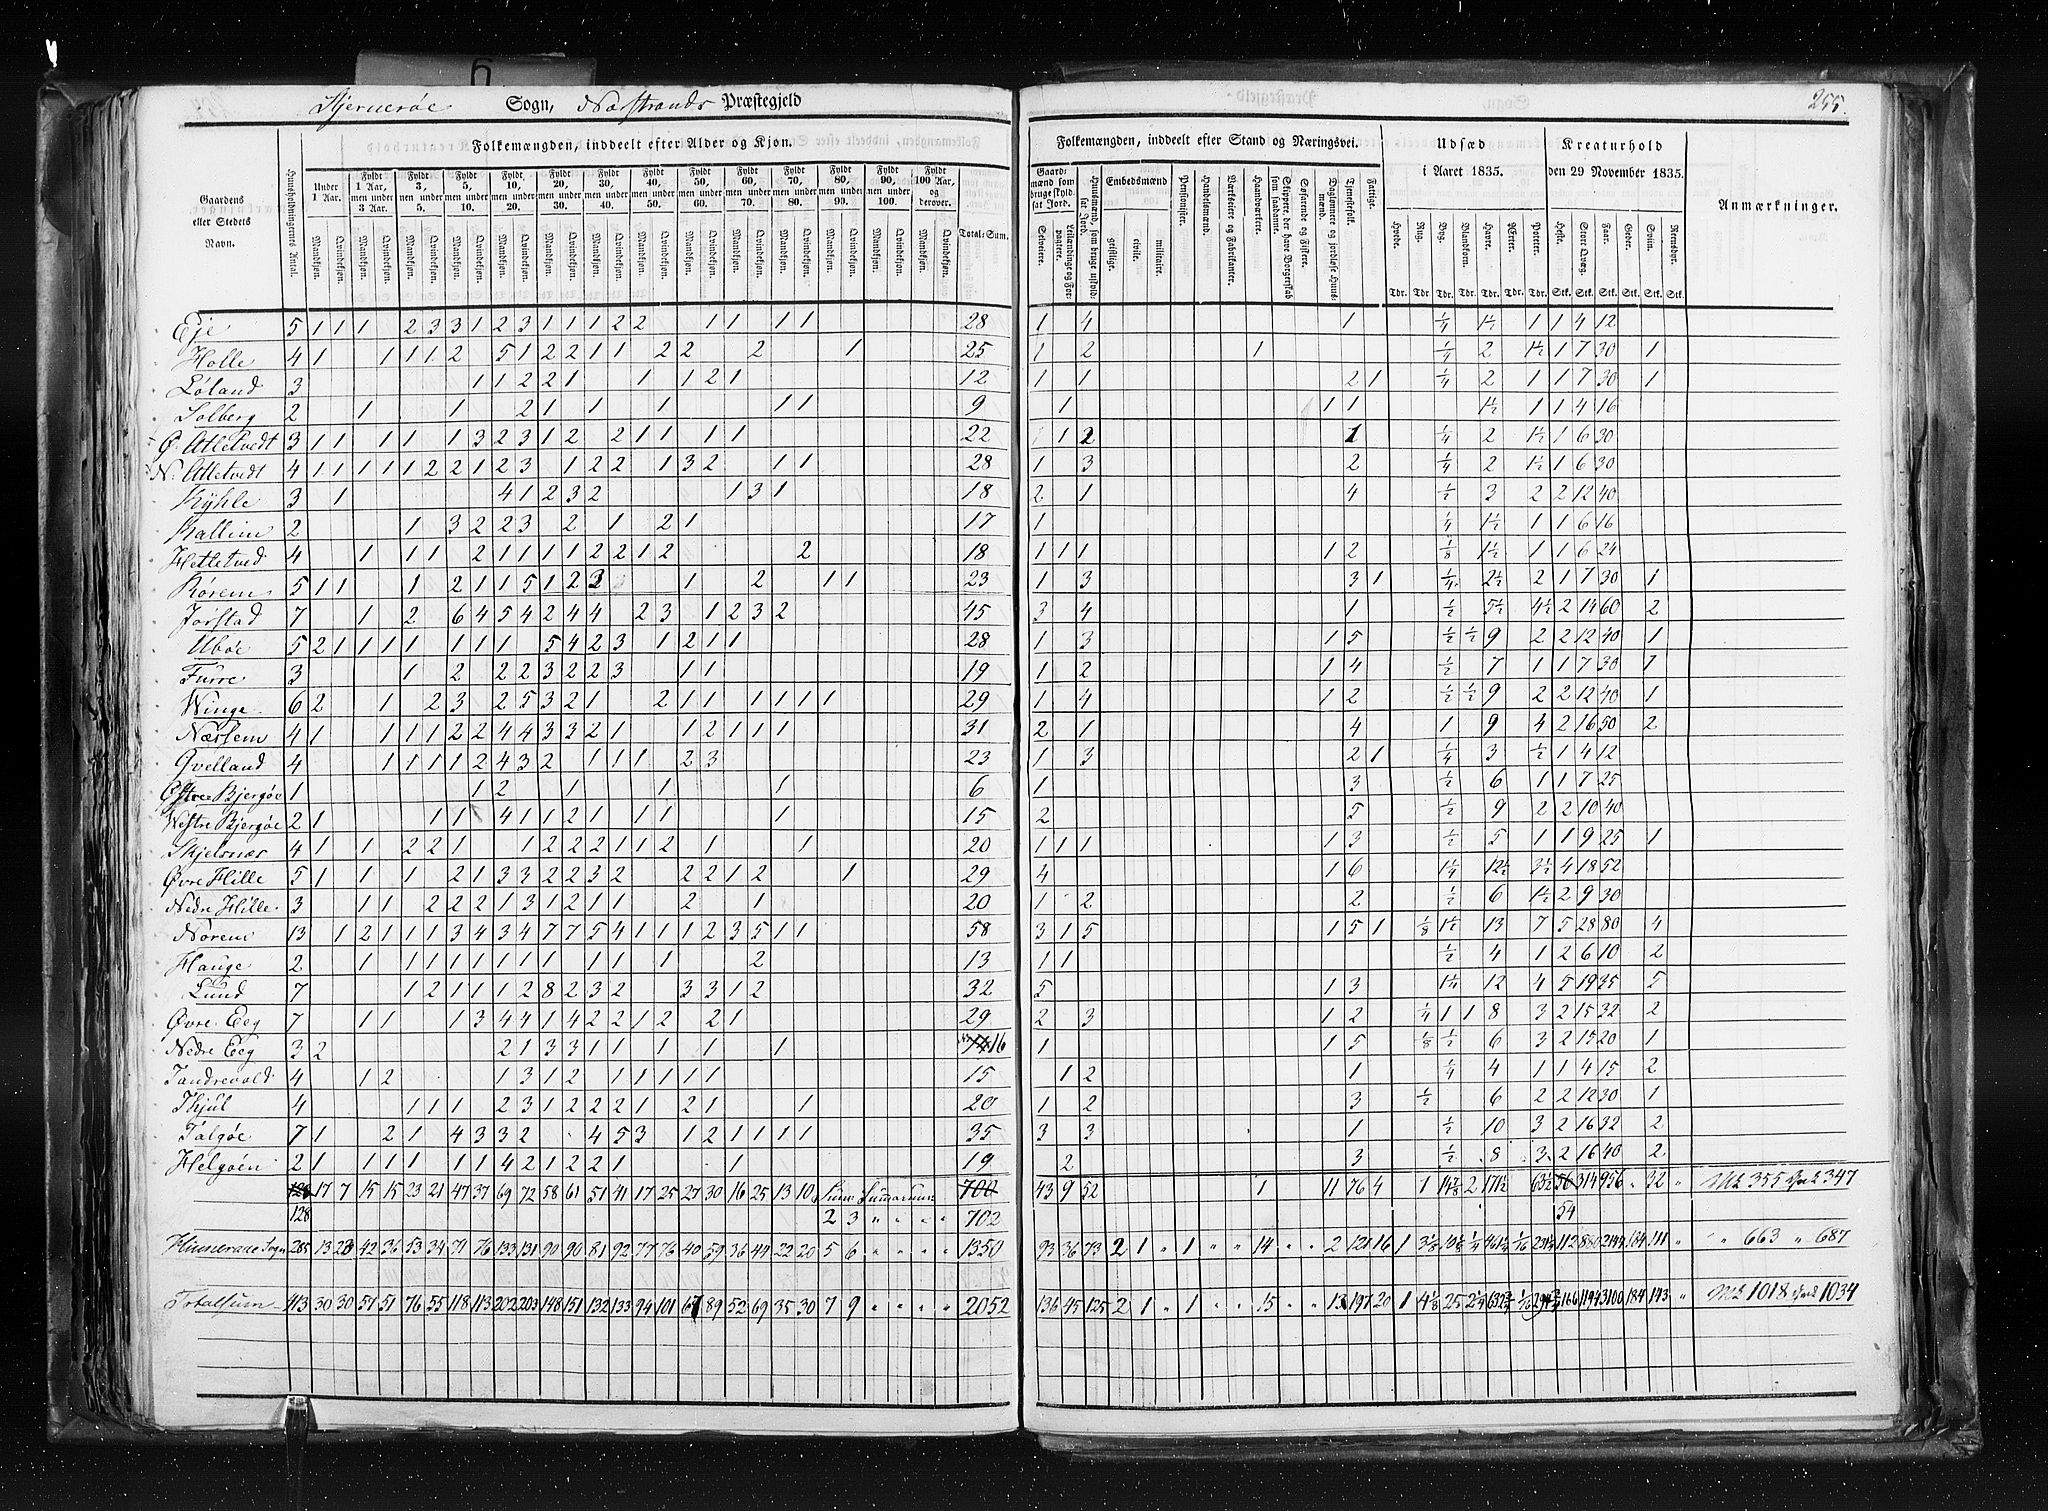 6
Sjernerøe Sogn, Nærstrands Præstegjeld
255.
Folkemængden, inddeelt efter Alder og Kjøn.
Folkemængden, inddeelt efter Stand og Næringsvei.
Udsæd i Aaret 1835.
Kreaturhold den 29 November 1835.
Anmærkninger.
Gaardens eller Stedets Navn.
Huusholdningernes Antal.
Under 1 Aar.
Fyldt 1 Aar, men under 3 Aar.
Fyldt 3, men under 5.
Fyldt 5, men under 10.
Fyldt 10, men under 20.
Fyldt 20, men under 30.
Fyldt 30, men under 40.
Fyldt 40, men under 50.
Fyldt 50, men under 60.
Fyldt 60, men under 70.
Fyldt 70, men under 80.
Fyldt 80, men under 90.
Fyldt 90, men under 100.
Fyldt 100 Aar, og derover.
Total-Sum.
Mandkjøn. Qvindekjøn.
Gaardmænd som bruge skyldsat Jord.
Selveiere.
Leilændinge og Forpagtere.
Huusmænd, som bruge uskyldsat Jord.
Embedsmænd
geistlige. civile. militaire.
Pensionister.
Handelsmænd.
Værkeiere og Fabrikanter.
Haandværkere.
Skippere, der have Borgerskab som saadanne.
Søfarende og Fiskere.
Daglønnere og jordløse Huusmænd.
Tjenestefolk.
Fattige.
Hvede. Rug. Byg. Blandkorn. Havre. Ærter. Poteter.
Heste. Stort Qvæg. Faar. Geder. Sviin. Reensdyr.
Tdr. Tdr. Tdr. Tdr. Tdr. Tdr. Tdr. Stk. Stk. Stk. Stk. Stk. Stk.
Eje 5 1 1 1 2 3 3 1 2 3 1 1 1 1 2 2 2 1 1 1 1 28 1 4 1 ¼ 1½ 1 1 4 12
Holle 4 1 1 1 1 2 5 1 2 2 1 1 2 2 2 1 25 1 2 1 ¼ 2 1½ 1 7 30 1
Løland 3 1 1 2 2 1 1 1 2 1 12 1 1 2 1 ¼ 2 1 1 7 30 1
Solberg 2 1 1 2 1 1 1 1 1 9 1 1 1 1½ 1 1 4 16
Ø. Atletvedt 3 1 1 1 1 1 3 2 3 1 2 2 1 1 1 1 22 1 1 2 1 ¼ 2 1½ 1 6 30
N. Atletvedt 4 1 1 1 1 1 2 2 1 2 3 1 2 2 1 3 2 1 1 28 1 3 2 ¼ 2 1½ 1 6 30
3 1 4 1 2 3 2 1 3 1 18 2 1 4 ½ 3 2 2 12 40
2 1 3 2 2 3 2 1 2 1 17 1 ¼ 1½ 1 1 6 16
Hetletved 4 1 1 1 2 1 1 1 1 2 2 1 2 2 18 1 1 1 1 2 ⅛ 1½ 1 1 6 24
Rørem 5 1 1 1 2 1 1 5 1 2 3 1 2 1 1 23 1 3 3 1 ¼ 2½ 2 1 7 30 1
Jørstad 7 1 2 6 4 5 4 2 4 4 2 3 1 2 3 2 45 3 4 1 ½ 5½ 4½ 2 14 60 2
Uboe 5 2 1 1 1 1 1 1 1 5 4 2 3 1 2 1 1 28 1 3 1 5 ½ ½ 9 2 2 12 40 1
Furre 3 1 2 2 2 3 2 2 3 1 1 19 1 2 1 4 ½ 7 1 1 7 30 1
Winge 6 2 1 2 3 2 5 3 2 1 2 1 1 1 1 1 1 29 1 4 1 2 ½ ½ 9 2 2 12 40 1
Næssem 4 1 1 1 1 2 2 4 4 3 3 2 1 1 2 1 1 1 31 2 1 4 1 9 4 2 16 50 2
Qvelland 4 1 1 1 1 1 2 4 3 2 1 1 1 2 3 23 1 3 2 1 ¼ 3 ½ 1 4 12
Østre Bjergøe 1 1 2 1 1 1 6 1 3 ½ 6 1 1 7 25
Westre Bjergøe 2 1 1 1 4 1 1 2 1 1 1 1 15 2 5 ½ 9 2 2 10 40
Skjelsnær 4 1 1 2 2 1 1 2 2 2 1 1 2 1 1 20 1 1 1 1 3 ½ 5 1 1 9 25 1
Øvre Hille 5 1 1 1 2 1 3 3 2 2 3 2 2 2 1 2 1 29 4 1 6 1¼ 12½ 3½ 4 18 52
Nedre Hille 3 1 1 2 2 2 1 3 1 2 1 1 2 1 20 1 2 2 ½ 6 1½ 2 9 30
Norem 13 1 2 1 1 1 3 4 3 4 7 7 5 4 1 1 1 2 3 5 1 1 58 3 1 5 1 5 1 ⅛ 1½ 13 7 5 28 80 4
Hauge 2 1 1 1 1 1 1 1 1 1 1 1 2 13 1 1 ½ 4 1 2 6 10 2
Lund 7 1 2 1 1 1 2 8 2 3 2 3 3 1 2 32 5 1 3 1¼ 12 4 5 19 35 5
Øvre Eeg 7 1 1 1 3 4 4 1 4 2 2 1 2 2 1 29 2 3 1 2 ¼ 1 1 8 3 2 15 32 2
Nedre Eeg 3 2 2 1 3 3 1 1 1 1 1 16 1 1 5 ⅛ ½ 6 3 2 15 20 1
Tandrevold 4 1 2 1 3 1 2 1 1 1 1 1 15 1 2 1 ¼ 4 1 1 4 15 2
4 1 1 1 2 3 1 2 2 2 1 2 1 1 20 1 2 3 ½ 6 2 2 12 30 1
Talgøe 7 1 2 1 4 3 3 2 4 5 3 1 2 1 1 1 1 35 3 3 1 ½ 10 3 2 16 32 2
Helgøen 2 1 1 1 1 1 1 4 2 1 2 2 1 1 19 2 3 ½ 8 3 2 16 40 2
17 7 15 15 23 21 47 37 69 72 58 61 51 41 17 25 27 30 16 25 13 10 700 43 9 52 1 11 76 4 1 14⅞ 2 171½ 63½ 56 314 956 " 32 " Mk 355 Qvk 347
128 2 3 " " " " 702 54
Hinneraae Sogn 285 13 23 42 36 53 34 71 76 133 131 90 90 81 92 77 76 40 59 36 44 22 20 5 6 " " " " 1350 93 36 73 2 1 " 1 " " 14 " " 2 121 16 1 3⅛ 10⅛ ¼ 112 184 111 " " 663 " 687
Totalsum 413 30 30 51 76 55 118 113 202 203 148 151 132 133 94 101 67 89 52 69 35 30 7 9 " " " " 2052 136 45 125 2 1 " 1 " " 15 " " 13 197 20 1 4⅛ 25 2¼ 166 1194 3100 184 143 " Mk 1018 Qvk 1034